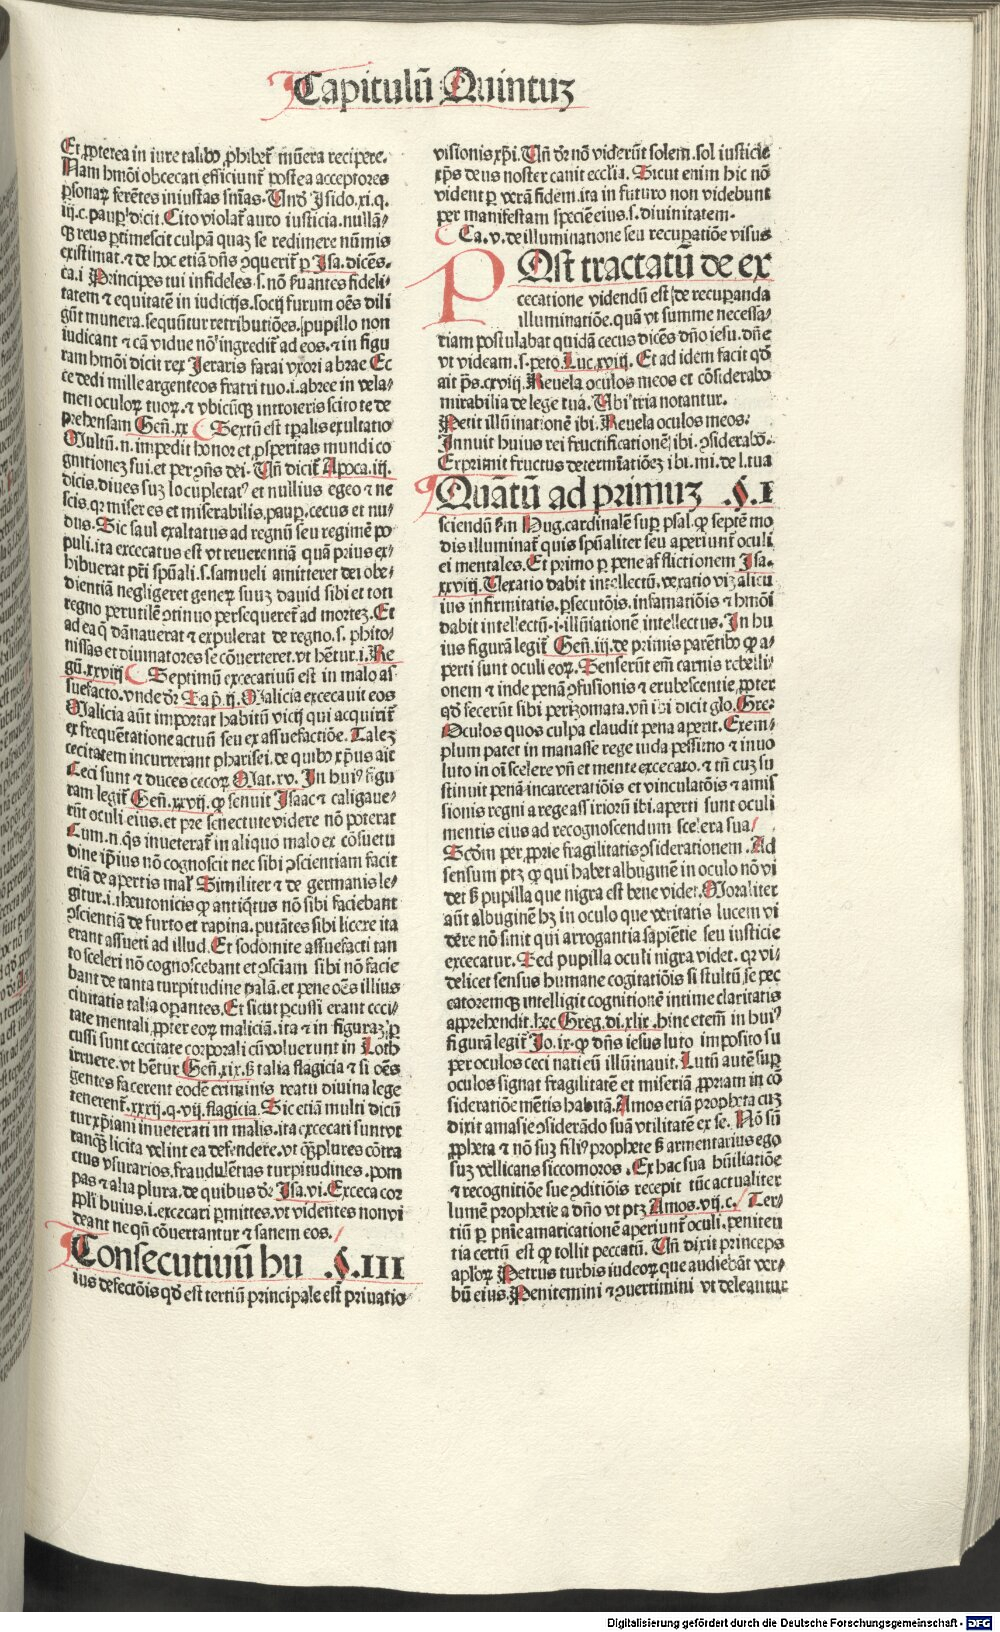 Capitulū Quintuꝫ
Et ꝓpterea in iure talibꝰ ꝓhibet᷑ mūera recipere.
Nam hmōi obcecati efficiunt᷑ postea acceptores
ꝑsonaꝝ ferētes iniustas sn̄ias. Vnd̄ Isido. xi. q.
iij. c. pauꝑ dicit. Cito violat᷑ auro iusticia. nullā⸗
qꝫ reus ꝑtimescit culpā quaꝫ se redimere nūmis
existimat. ⁊ de hoc etiā dn̄s ꝯquerit᷑ ꝑ Isa. dicēs.
ca. i Principes tui infideles. s. nō ẜuantes fideli⸗
tatem ⁊ equitatē in iudicijs. socij furum oēs dili
gūt munera. sequūtur retributiōes. pupillo non
iudicant ⁊ cā vidue nō ingredit᷑ ad eos. ⁊ in figu
ram hmōi dicit rex Ieraris farai vxori abrae Ec
ce dedi mille argenteos fratri tuo. i. abrae in vela⸗
men oculoꝝ tuoꝝ. ⁊ vbicūqꝫ introieris scito te de
prehensam Geñ. xx Sextū est tꝑalis exultatio
Multū. n. impedit honor et ꝓsperitas mundi co
gnitionez sui. et per ꝯn̄s dei. Vn̄ dicit᷑ Apoca. iij.
dicis. diues suꝫ locupletatꝰ et nullius egeo ⁊ ne
scis. qꝛ miser es et miserabilis. pauꝑ. cecus et nu⸗
dus. Sic saul exaltatus ad regnū seu regimē po
puli. ita excecatus est vt reuerentiā quā prius ex⸗
hibuerat pr̄i spūali. s. samueli amitteret dei obe⸗
dientiā negligeret generꝝ suuꝫ dauid sibi et toti
regno perutilē ꝯtinuo persequeret᷑ ad mortez. Et
ad ea q̄ dānauerat ⁊ expulerat de regno. s. phito⸗
nissas et diuinatores se cōuerteret. vt hētur. i. Re
gū. xxviij Septimū excecatiuū est in malo as
suefacto. vnde dr̄. Sap̄. ij. Malicia excecauit eos
Malicia aūt importat habitū vicij qui acquirit᷑
ex frequētatione actuū seu ex assuefactiōe. Talez
cecitatem incurrerant pharisei. de quibꝰ xp̄us ait
Ceci sunt ⁊ duces cecoꝝ Mat. xv. In huiꝰ figu
ram legit᷑ Geñ. xxvij. qꝙ senuit Isaac ⁊ caligaue⸗
rūt oculi eius. et pre senectute videre nō poterat
Cum. n. q̄s inueterat᷑ in aliquo malo ex cōsuetu
dine ip̄ius nō cognoscit nec sibi ꝯscientiam facit
etiā de apertis mal᷑ Similiter ⁊ de germanis le⸗
gitur. i. theutonicis ꝙ antiqͥtus nō sibi faciebant
ꝯscientiā de furto et rapina. putātes sibi licere ita
erant assueti ad illud. Et sodomite assuefacti tan
to sceleri nō cognoscebant et ꝯsc̄iam sibi nō facie
bant de tanta turpitudine palā. et pene oēs illius
ciuitatis talia oꝑantes. Et sicut ꝑcussi erant ceci⸗
tate mentali ꝓpter eoꝝ maliciā. ita ⁊ in figuraꝫ ꝑ
cussi sunt cecitate corporali cū voluerunt in Loth
irruere. vt hētur Geñ. xix. ꝫ talia flagicia ⁊ si oēs
gentes facerent eodē criminis reatu diuina lege
tenerent᷑. xxxij. q. vij. flagicia. Sic etiā multi dicū
tur xp̄iani inueterati in malis. ita excecati sunt vt
tanqꝫ licita velint ea defendere. vt qꝫ plures cōtra
ctus vsurarios. fraudulētias turpitudines. pom
pas ⁊ alia plura. de quibus dr̄ Isa. vi. Exceca cor
ppl̓i huius. i. excecari ꝑmittes. vt videntes non vi
deant ne qn̄ cōuertantur ⁊ sanem eos.
Consecutiuū hu .§.III
ius defectōis qd̄ est tertiū principale est priuatio
visionis xp̄i. Vn̄ dr̄ nō viderūt solem. sol iusticie
xp̄s deus noster canit eccl̓ia. Sicut enim hic nō
vident ꝑ verā fidem. ita in futuro non videbunt
per manifestam speciē eius. s. diuinitatem.
Ca. v. de illuminatione seu recuꝑatiōe visus
POst tractatū de ex
cecatione videndū est de recuꝑanda
illuminatiōe. quā vt summe necessa⸗
riam postulabat quidā cecus dicēs dn̄o iesu. dn̄e
vt videam. s. peto Luc. xviij. Et ad idem facit qd̄
ait ps̄. cxviij. Reuela oculos meos et cōsiderabo
mirabilia de lege tua. Vbi tria notantur.
Petit illūinationē ibi. Reuela oculos meos.
Innuit huius rei fructificationē ibi. ꝯsiderabo.
Exprimit fructus determīatiōez ibi. mi. de l. tua
Quātū ad primuꝫ .§.I
sciendū ẜm Hug. cardinalē suꝑ psal. ꝙ septē mo
dis illuminat᷑ quis spūaliter seu aperiunt᷑ oculi
ei mentales. Et primo ꝑ pene afflictionem Isa.
xxviij. Vexatio dabit intellectū. vexatio viꝫ alicu
ius infirmitatis. ꝑsecutōis. infamatiōis ⁊ hmōi
dabit intellectū. i. illūiationē intellectus. In hu
ius figurā legit᷑ Geñ. iij. de primis parētibꝰ ꝙ a⸗
perti sunt oculi eoꝝ. Senserūt em̄ carnis rebelli⸗
onem ⁊ inde penā ꝯfusionis ⁊ erubescentie ꝓpter
qd̄ fecerūt sibi perizomata. vn̄ ibi dicit glo. Gre.
Oculos quos culpa claudit pena aperit. Exem⸗
plum patet in manasse rege iuda pessimo ⁊ inuo
luto in oī scelere vn̄ et mente excecato. ⁊ tn̄ cuꝫ su
stinuit penā incarceratiōis et vinculatōis ⁊ amis
sionis regni a rege assirioruꝫ ibi. aperti sunt oculi
mentis eius ad recognoscendum scelera sua
Scd̄m per ꝓprie fragilitatis ꝯsiderationem. Ad
sensum ptꝫ ꝙ qui habet albuginē in oculo nō vi
det ꝫ pupilla que nigra est bene videt. Moraliter
aūt albuginē hꝫ in oculo que veritatis lucem vi
dere nō sinit qui arrogantia sapiētie seu iusticie
excecatur. Sed pupilla oculi nigra videt. qꝛ vi⸗
delicet sensus humane cogitatiōis si stultū se pec
catoremqꝫ intelligit cognitionē intime claritatis
apprehendit. hec Greg. di. xlix. hinc etem̄ in huiꝰ
figurā legit᷑ Jo. ix. ꝙ dn̄s iesus luto imposito su
per oculos ceci nati eū illūinauit. Lutū autē suꝑ
oculos signat fragilitatē et miseriā ꝓpriam in cō
sideratiōe mētis habitā. Amos etiā propheta cuꝫ
dixit amasie ꝯsiderādo suā vtilitatē ex se. Nō sū
ꝓpheta ⁊ nō suꝫ filiꝰ prophete ꝫ armentarius ego
suꝫ vellicans siccomoros. Ex hac sua hūiliatiōe
⁊ recognitiōe sue ꝯditiōis recepit tūc actualiter
lumē prophetie a dn̄o vt ptꝫ Amos. vij. c. Ter⸗
tiū ꝑ pnīe amaricationē aperiunt᷑ oculi. peniten
tia certū est ꝙ tollit peccatū. Vn̄ dixit princeps
apl̓oꝝ Petrus turbis iudeoꝝ que audiebāt ver⸗
bū eius. Penitemini ⁊ ꝯuertimini vt deleantur
Digitalisierung gefördert durch die Deutsche Forschungsgemeinschaft - DFG